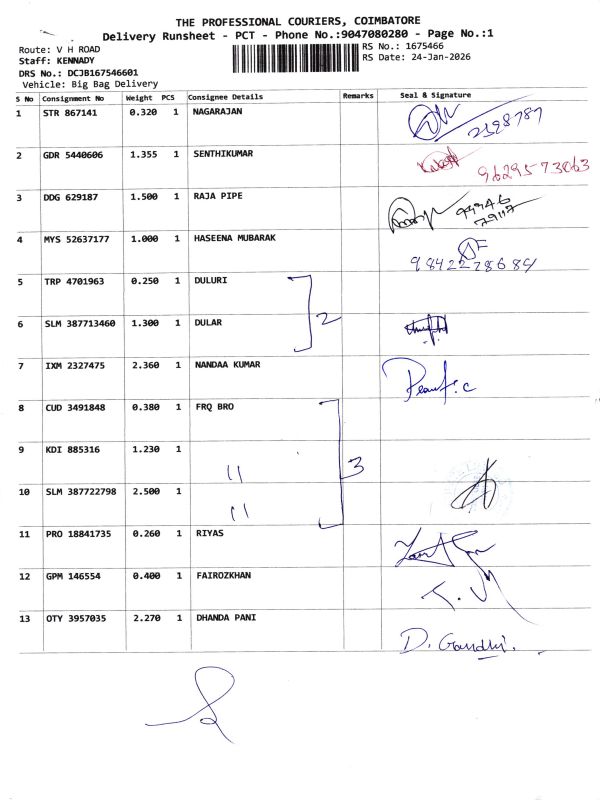 THE PROFESSIONAL COURIERS, COIMBATORE
Delivery Runsheet - PCT - Phone No.:9047080280 - Page No.:1
Route: V H ROAD
RS No.: 1675466
Staff: KENNADY
RS Date: 24-Jan-2026
DRS No.: DCJB167546601
Vehicle: Big Bag Delivery
S No Consignment No Weight PCS Consignee Details Remarks Seal & Signature
1 STR 867141 0.320 1 NAGARAJAN
2 GDR 5440606 1.355 1 SENTHIKUMAR
9629573063
3 DDG 629187 1.500 1 RAJA PIPE
4 MYS 52637177 1.000 1 HASEENA MUBARAK
5 TRP 4701963 0.250 1 DULURI
2
6 SLM 387713460 1.300 1 DULAR
7 IXM 2327475 2.360 1 NANDAA KUMAR
8 CUD 3491848 0.380 1 FRQ BRO
9 KDI 885316 1.230 1 "
3
10 SLM 387722798 2.500 1 "
11 PRO 18841735 0.260 1 RIYAS
12 GPM 146554 0.400 1 FAIROZKHAN
13 OTY 3957035 2.270 1 DHANDA PANI
D. Gandhi.